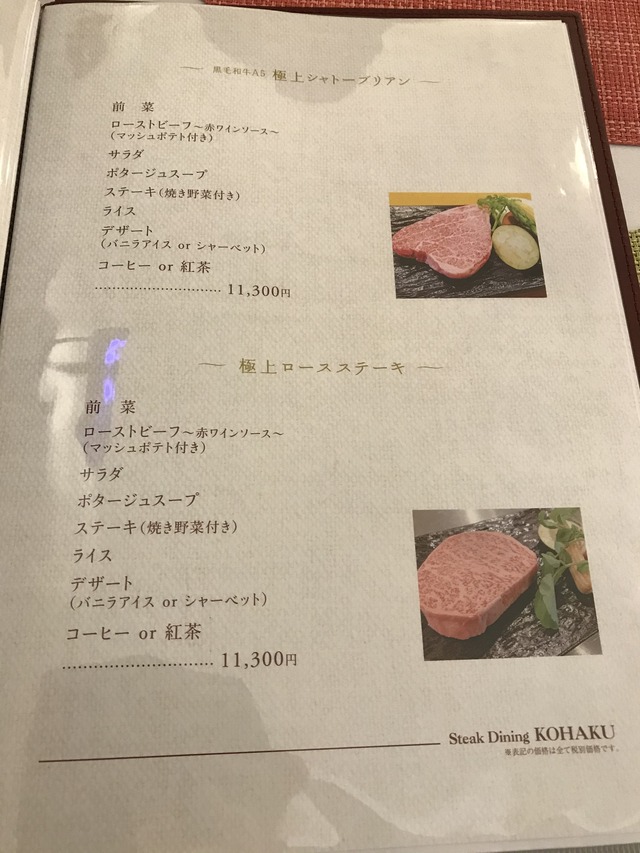 黒毛和牛A5 極上シャトーブリアン
前 菜
ローストビーフ～赤ワインソース～
(マッシュポテト付き)
サラダ
ポタージュスープ
ステーキ(焼き野菜付き)
ライス
デザート
(バニラアイス or シャーベット)
コーヒー or 紅茶
............................ 11,300円
極上ロースステーキ
前 菜
ローストビーフ～赤ワインソース～
(マッシュポテト付き)
サラダ
ポタージュスープ
ステーキ(焼き野菜付き)
ライス
デザート
(バニラアイス or シャーベット)
コーヒー or 紅茶
............................ 11,300円
Steak Dining KOHAKU
※表記の価格は全て税別価格です。